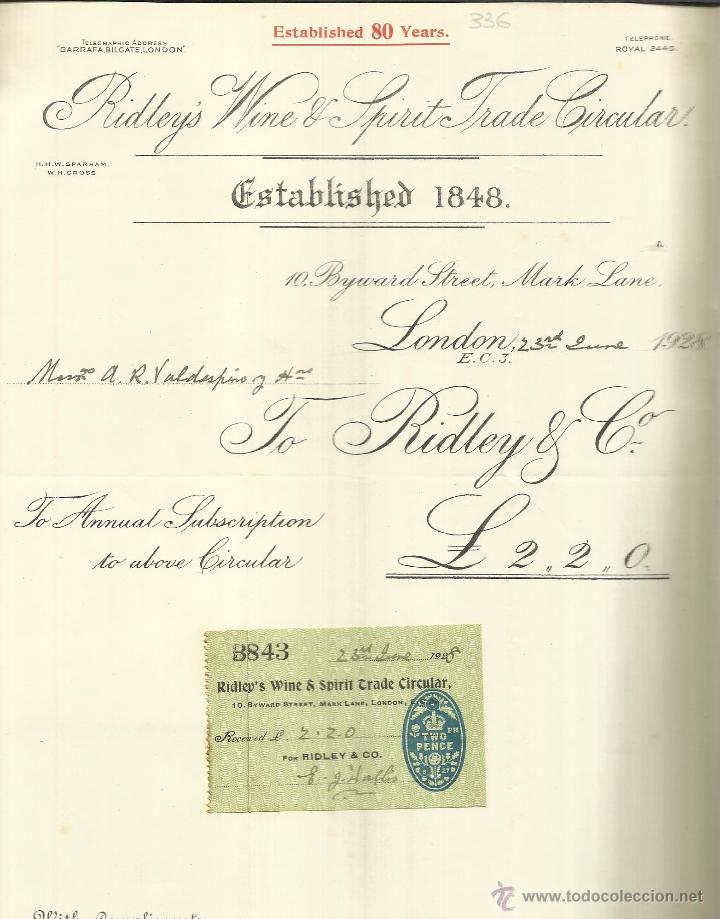 336
Established 80 Years.
TELEGRAPHIC ADDRESS
"GARRAFA, BILGATE, LONDON".
TELEPHONE.
ROYAL 2445.
Ridley's Wine & Spirit Trade Circular.
H.H.W. SPARHAM.
W.H. CROSS
Established 1848.
10, Byward Street, Mark Lane,
London, 23rd June 1928
E.C.3.
Messrs A. R. Valdespino y Hno
To Ridley & Co.
To Annual Subscription
to above Circular
£ 2 „ 2 „ 0.
B843 23rd June 1928
Ridley's Wine & Spirit Trade Circular,
10, BYWARD STREET, MARK LANE, LONDON,
Received £ 2.2.0
TWO
PENCE
FOR RIDLEY & CO.
With Compliments
www.todocoleccion.net